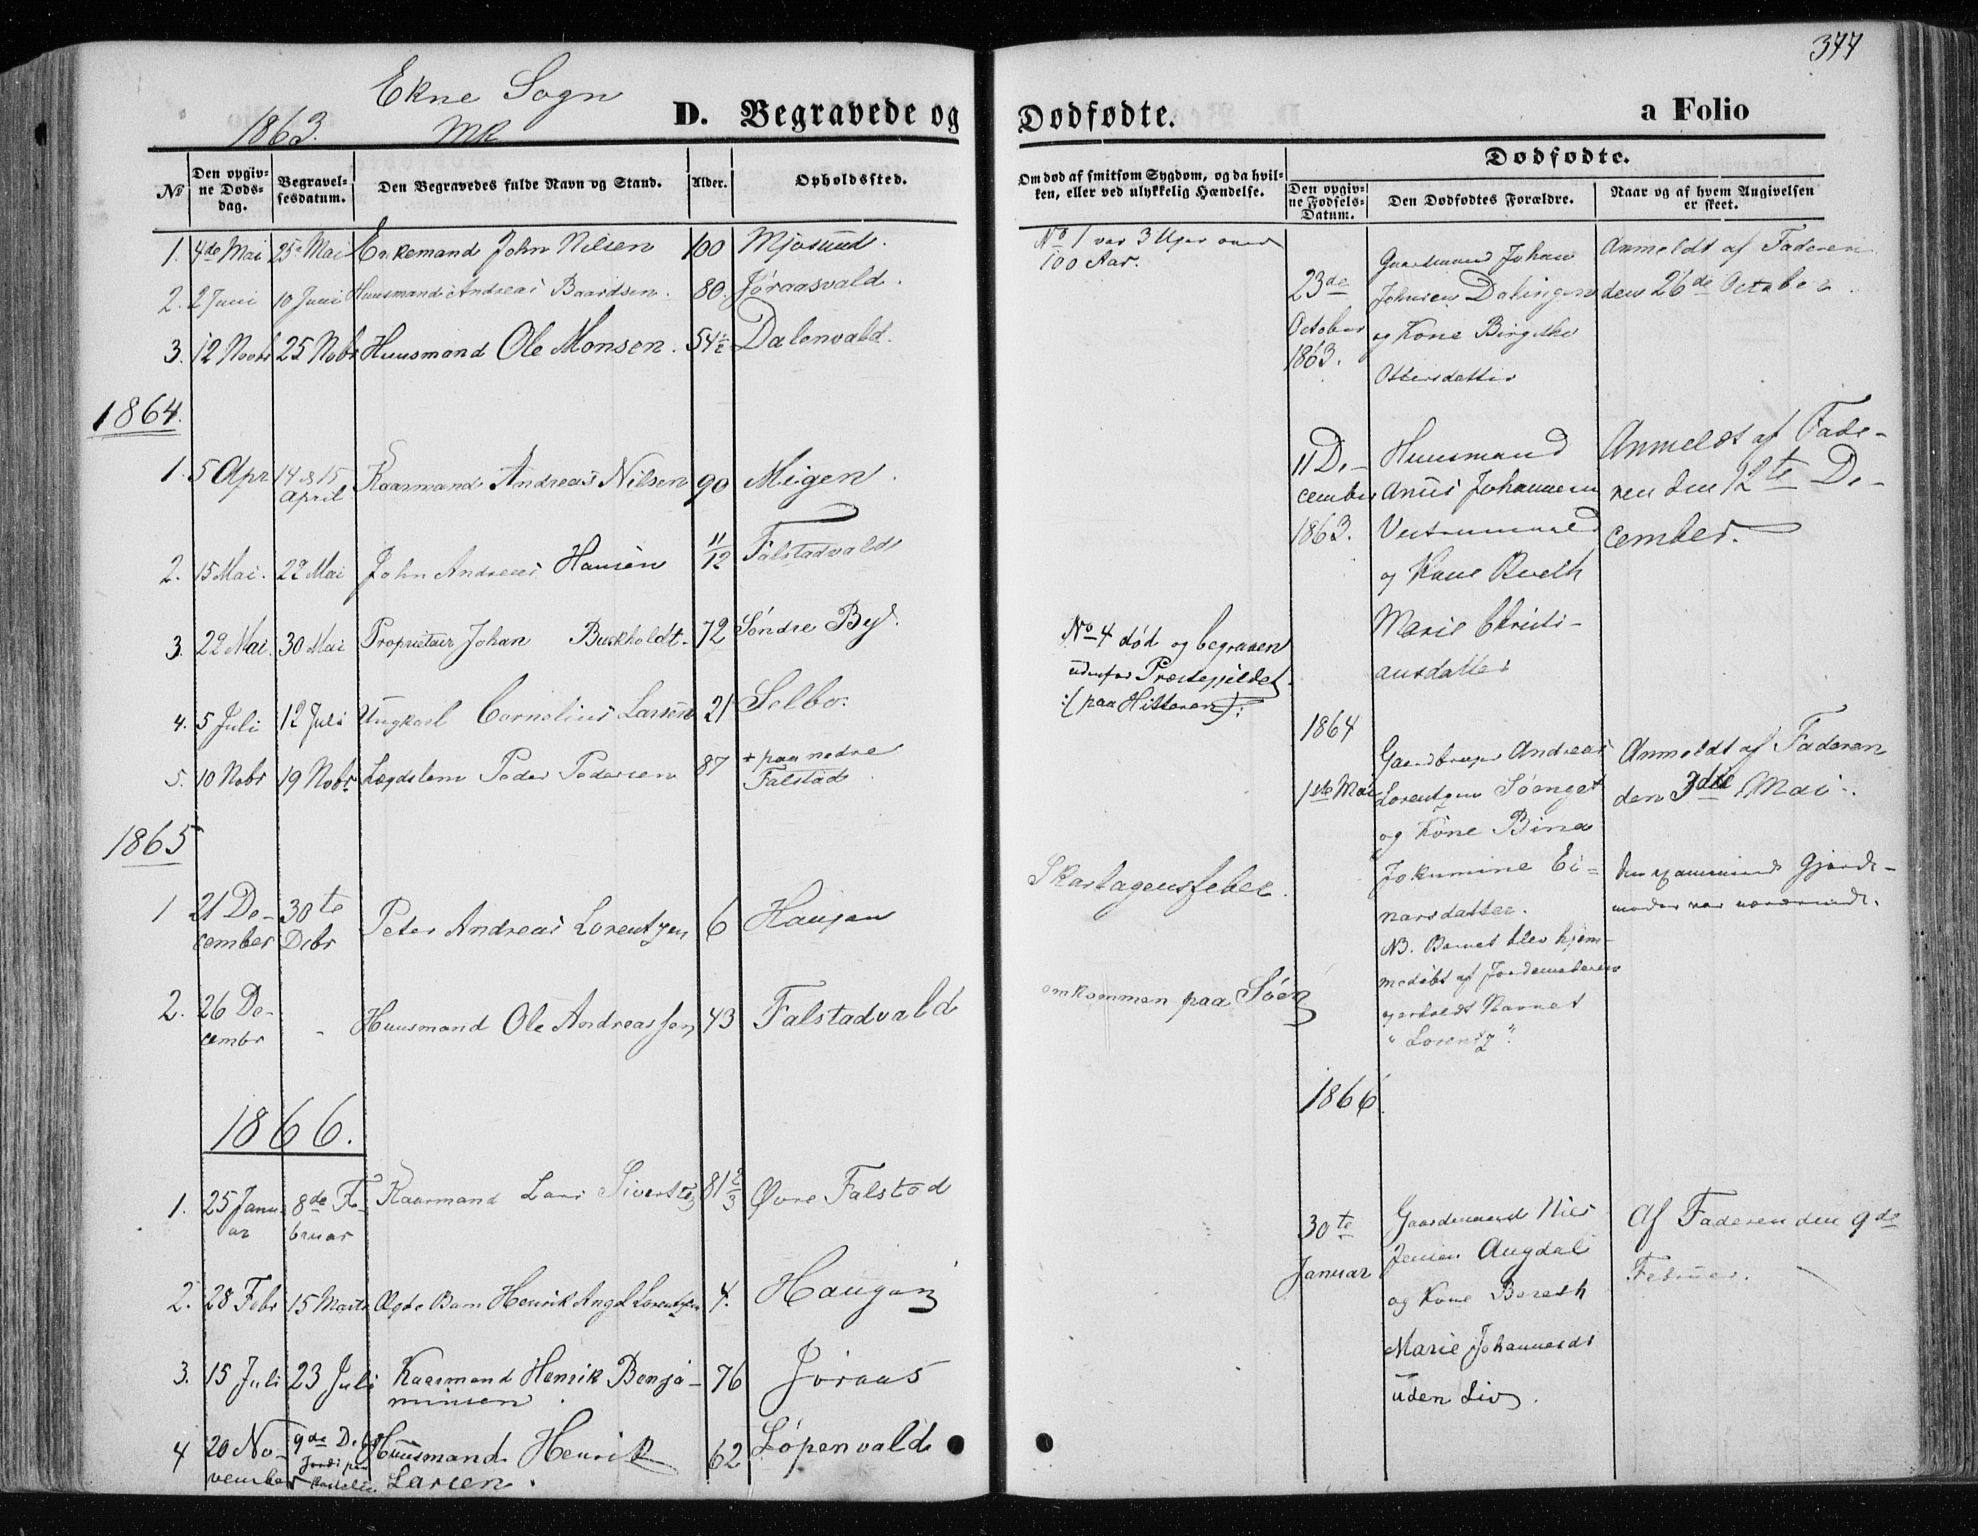 377
Ekne Sogn
1863. MK
D. Begravede og Dødfødte. a Folio
No
Den opgiv-
ne Døds-
dag.
Begravel-
sesdatum.
Den Begravedes fulde Navn og Stand.
Alder.
Opholdssted.
Om død af smitsom Sygdom, og da hvil-
ken, eller ved ulykkelig Hændelse.
Dødfødte.
Den opgiv-
ne Fødsels-
Datum.
Den Dødfødtes Forældre.
Naar og af hvem Angivelsen
er skeet.
1. 4de Mai 25de Mai Enkemand John Nilsen 100 Mjøsund.
2. 2 Juni 10 Juni Huusmand Andreas Baardsen. 80. Jøraasvald.
3. 12 Novbr 25 Nobr Huusmand Ole Monsen. 54½ Dalenvald.
1864.
1. 5 Apr 14 & 15 April Kaarmand Andreas Nilsen 90 Meigen.
2. 15 Mai. 22 Mai John Andreas Hansen 11/12 Falstadvald
3. 22 Mai. 30 Mai Proprietair Johan Buckholdt. 72 Søndre By.
4. 5 Juli 12 Juli Ungkarl Cornelius Larsen 21 Selbo.
5. 10 Nobr 19 Nobr. Lægdslem Peder Pedersen 87 + paa nedre
Falstad.
1865
1 21 De-
cember 30te
Debr Peter Andreas Lorentzen 6 Haugan
2. 26 De-
cembr - Huusmand Ole Andreassen 43 Falstadvald
1866.
1. 25 Janu-
ar 8de Fe-
bruar Kaarmand Lars Sivertsen 81 2/3 Øvre Falstad
2. 28 Febr 15 Marts Ægte Barn Henrik Angel Lorentzen 4. Haugan
3. 15 Juli 23 Juli Kaarmand Henrik Benja-
minsen. 76 Jøraas
4 20 No-
vember 9de Debr
Jords paa
Huusmand Henrik
Larsen. 62 Løpenvald
No 1 var 3 Uger over
100 Aar.
No 4 død og begraven
udenfor Præstegjeldet
:(paa Hitteren):
Skarlagensfeber.
omkommen paa Søen
23de
October
1863.
Gaardmand Johan
Johnsen
og Kone Birgithe
Ottersdatter
Anmeldt af Faderen
den 26de October.
11 De-
cember
1863.
Huusmand
Johannesen
og Kone Bereth
Marie Christi-
ansdatter
Anmeldt af Fade-
ren den 12te De-
cember.
1864
1ste Mai
Gaardbruger Andreas
Lorentzen
og Kone Bina
Jokumine Ei-
narsdatter.
NB. Barnet blev hjem-
medøbt af Jordemoderen
og erholdt Navnet
"Lorentz".
Anmeldt af Faderen
den 3die Mai.
Den examinerede Gjorde-
moder var nærværende.
1866.
30te
Januar
Gaardmand Nils
Jensen Augdal
og Kone Bereth
Marie Johannesdr
uden Liv.
Af Faderen den 9de
Februar.